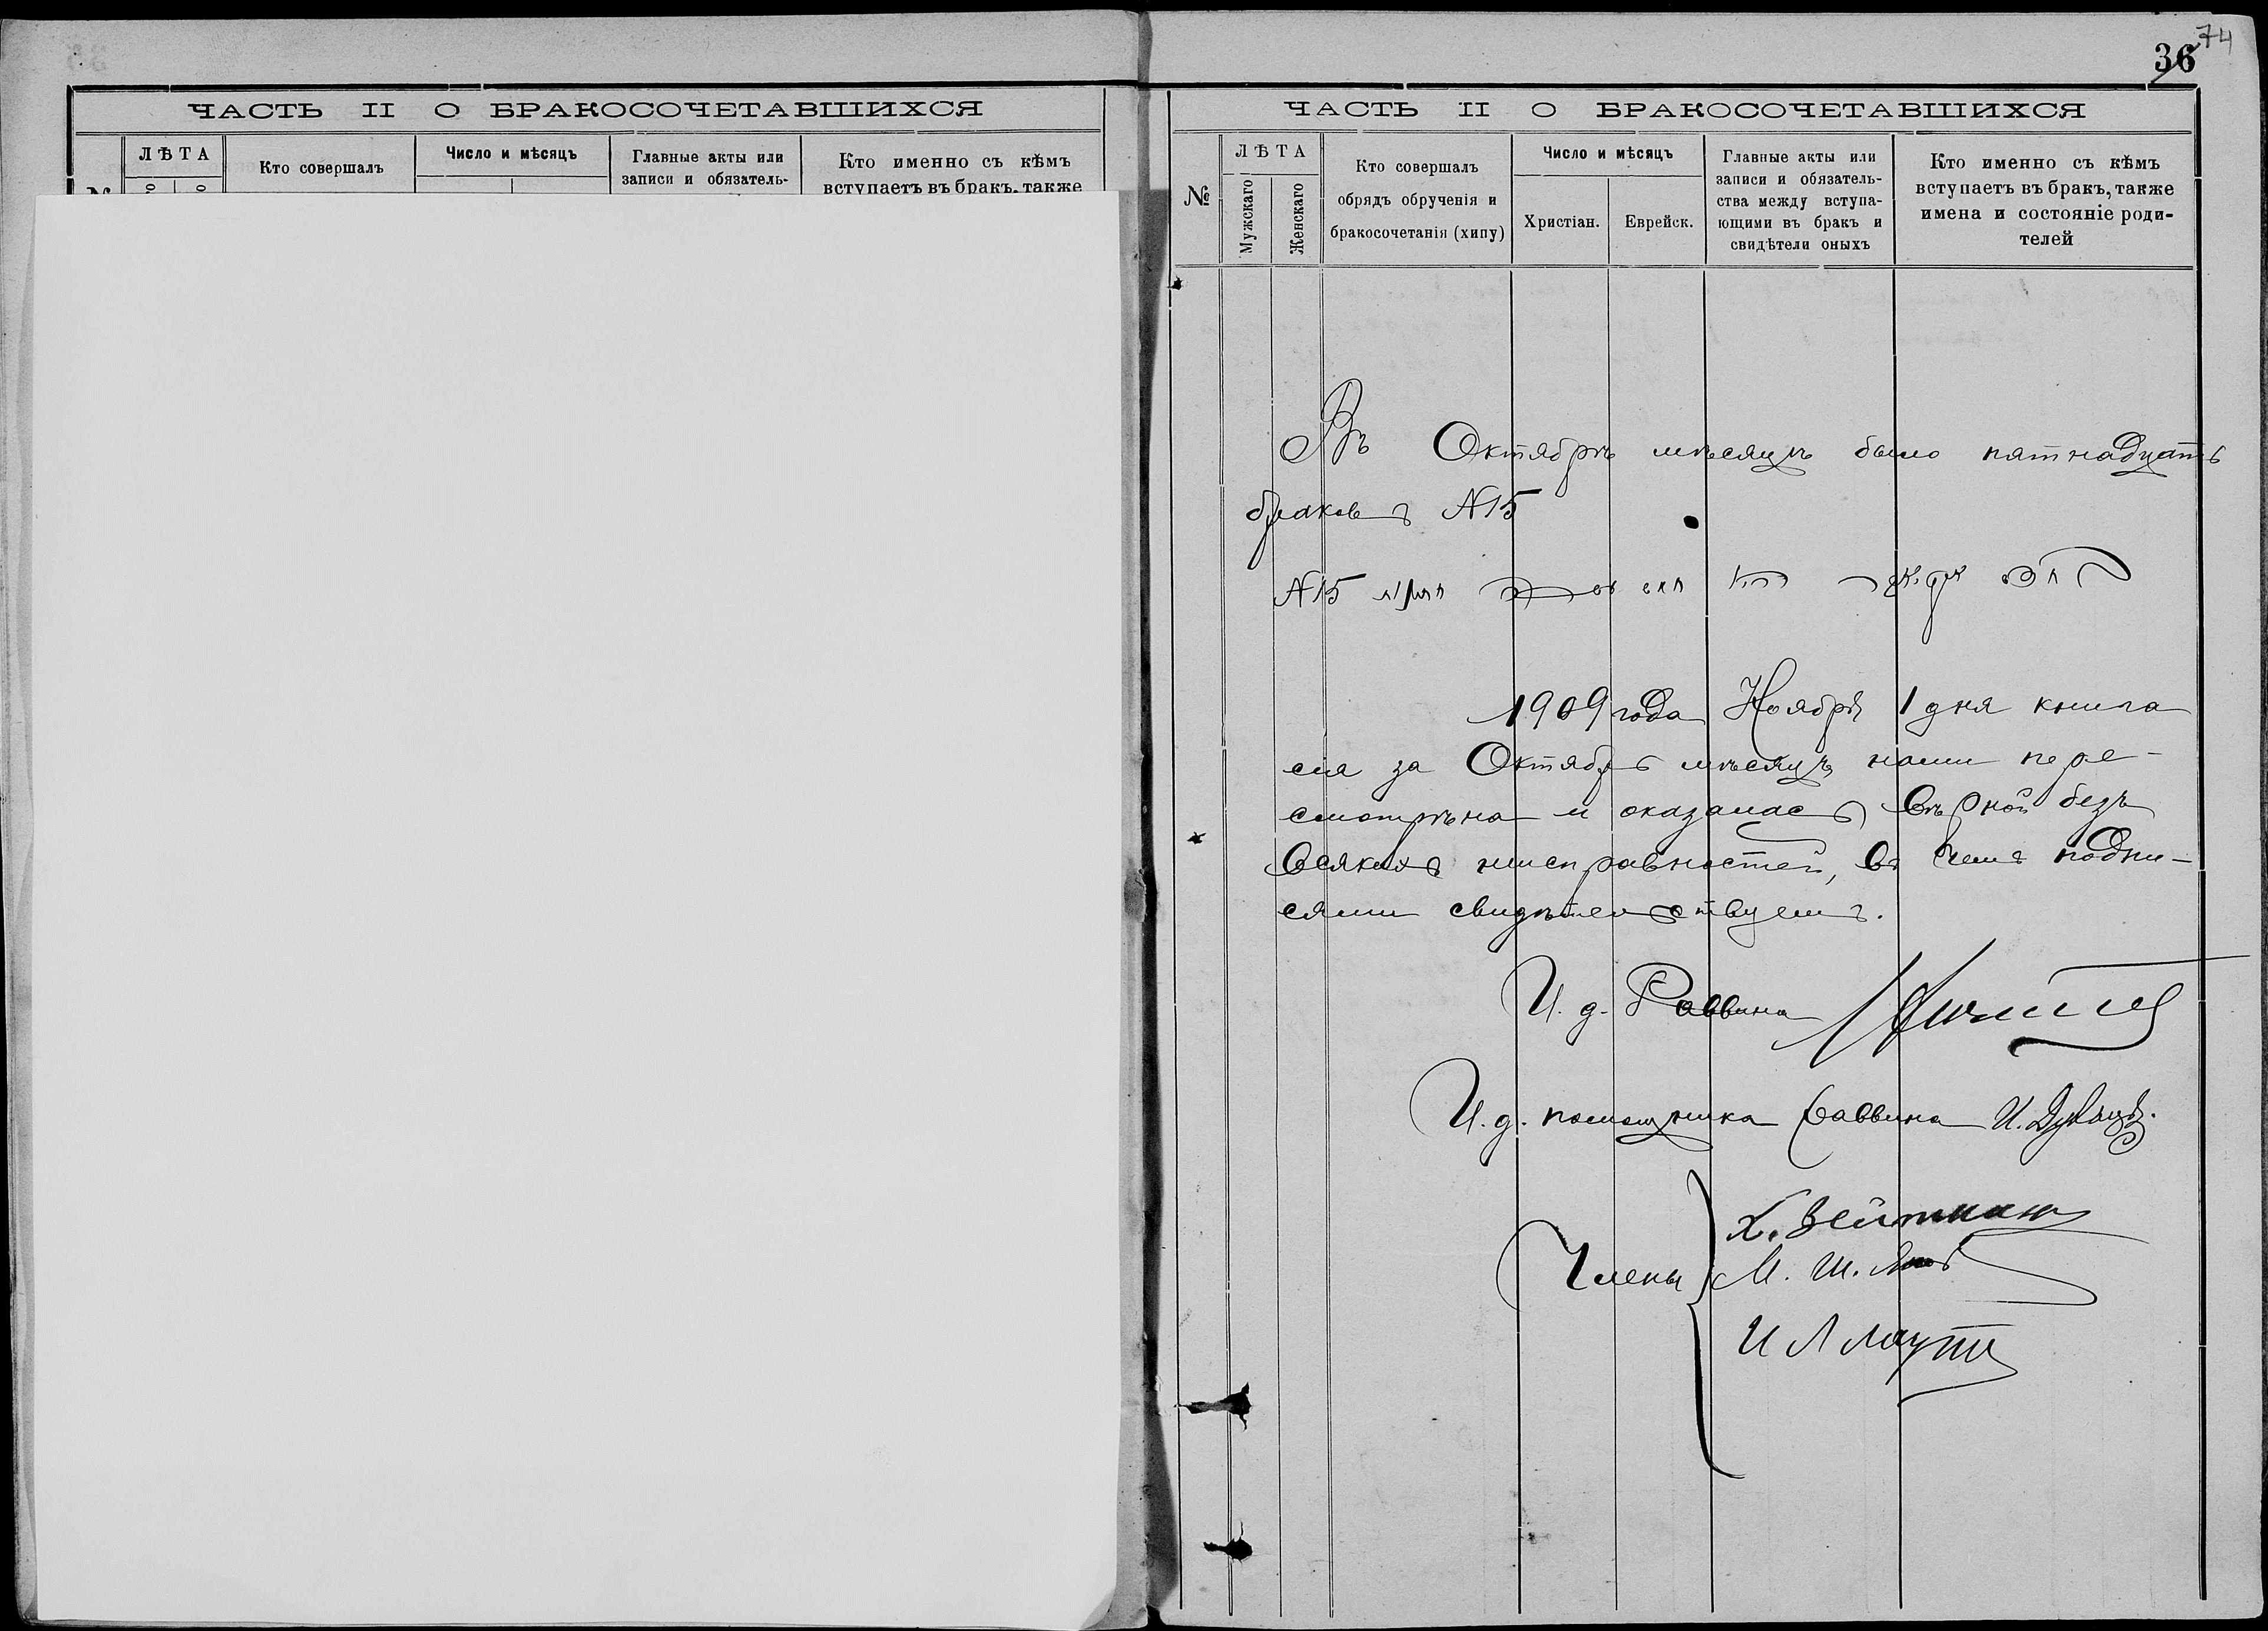 ЧАСТЬ II О БРАКОСОЧЕТАВШИХСЯ
ЛѢТА
Кто совершалъ
Число и мѣсяцъ
Главные акты или
записи и обязатель-
Кто именно съ кѣмъ
вступаетъ въ бракъ, также
74
36
ЧАСТЬ II О БРАКОСОЧЕТАВШИХСЯ
№
ЛѢТА
Мужскаго
Женскаго
Кто совершалъ
обрядъ обрученія и
бракосочетанія (хипу)
Число и мѣсяцъ
Христіан.
Еврейск.
Главные акты или
записи и обязатель-
ства между вступа-
ющими въ бракъ и
свидѣтели оныхъ
Кто именно съ кѣмъ
вступаетъ въ бракъ, также
имена и состояніе роди-
телей
Въ Октябрѣ мѣсяцѣ было пятнадцать
браковъ №15
№15
1909 года Ноября 1 дня книга
сія за Октябрь мѣсяцъ нами пере-
смотрѣна и оказалась вѣрной безъ
всякихъ неисправностей, въ чемъ подпи-
сями свидѣтельствуемъ.
И. д. Раввина
И. д. помощника раввина И.
Члены
Х. Вейтман
М. Ш.
И Л